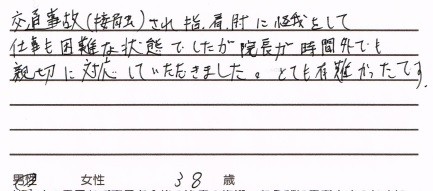 交通事故(接骨院)され指、肩、肘に怪我をして
仕事も困難な状態でしたが院長が時間外でも
親切に対応していただきました。とても有難かったです。
男性 女性 38 歳